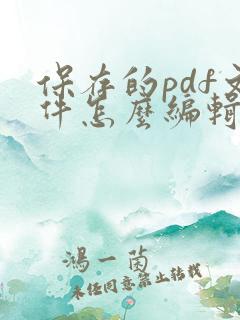 保存的pdf文
件怎麼編輯
鴻一茵
未经同意禁止转载